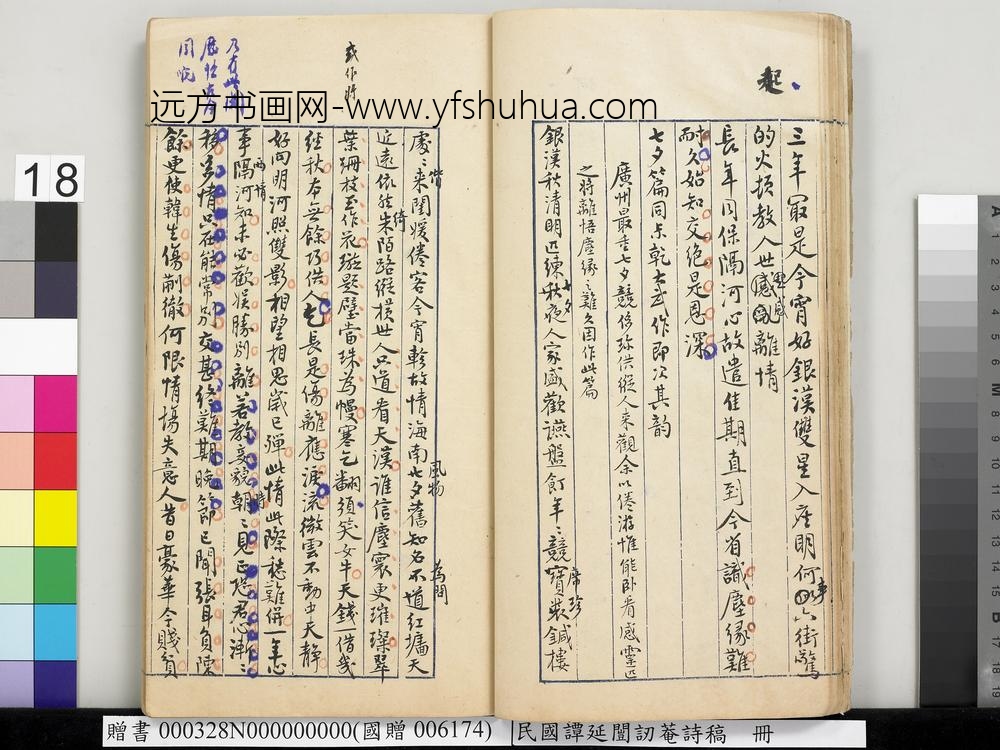 起
三年最是今宵好銀漢雙星入座明何事六街驚
的火頻教人世感亂離情
長年同保隔河心故遣佳期直到今省識塵緣難
耐久始知交絕是恩深
七夕篇同卣乾大武作即次其韻
廣州最重七夕競修珍供縱人來觀余以倦游惟能臥看感靈匹
之時離悟塵緣之難久因作此篇
銀漢秋清明匹練七夕秋夜人家盛歡讌盤飣年年競寶裝鍼樓
席珍
處處來閨媛倦客今宵軫故情海南七夕舊知名不道紅牆天
偕
風物
為問
近遠依然朱陌路縱橫世人只道看天漢誰信塵寰更璀璨翠
綺
葉珊枝玉作花
當珠為幔寒乞翻須笑女牛天錢一借幾
或作將
經秋存無餘巧供人乞長是傷離應淚流微雲不動中天靜
好向明河照雙影相望相思歲已彈此情此際愁難併一年心
事隔河知未必歡娛勝別離若教
朝朝見正恐君心漸漸
兩情
移
情只在能常別交甚終難期晚節已聞張耳負陳
餘更使韓生傷蒯徹何限情場失意人昔日豪華今賤貧
远方书画网-www.yfshuhua.com
18
贈書 000328N000000000(國贈 006174)
民國譚延闓訒菴詩稿 冊